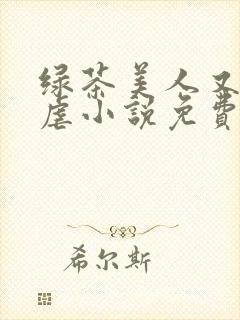 绿茶美人又
虐小説免費
希尔斯